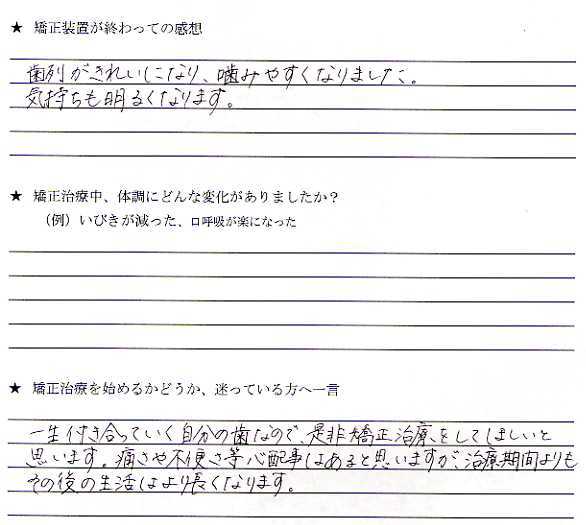 ★ 矯正装置が終わっての感想
歯列がきれいになり、噛みやすくなりました。
気持ちも明るくなります。
★ 矯正治療中、体調にどんな変化がありましたか？
（例）いびきが減った、口呼吸が楽になった
★ 矯正治療を始めるかどうか、迷っている方へ一言
一生付き合っていく自分の歯なので、是非矯正治療をしてほしいと
思います。痛さや不便さ等心配事はあると思いますが、治療期間よりも
その後の生活はより長くなります。